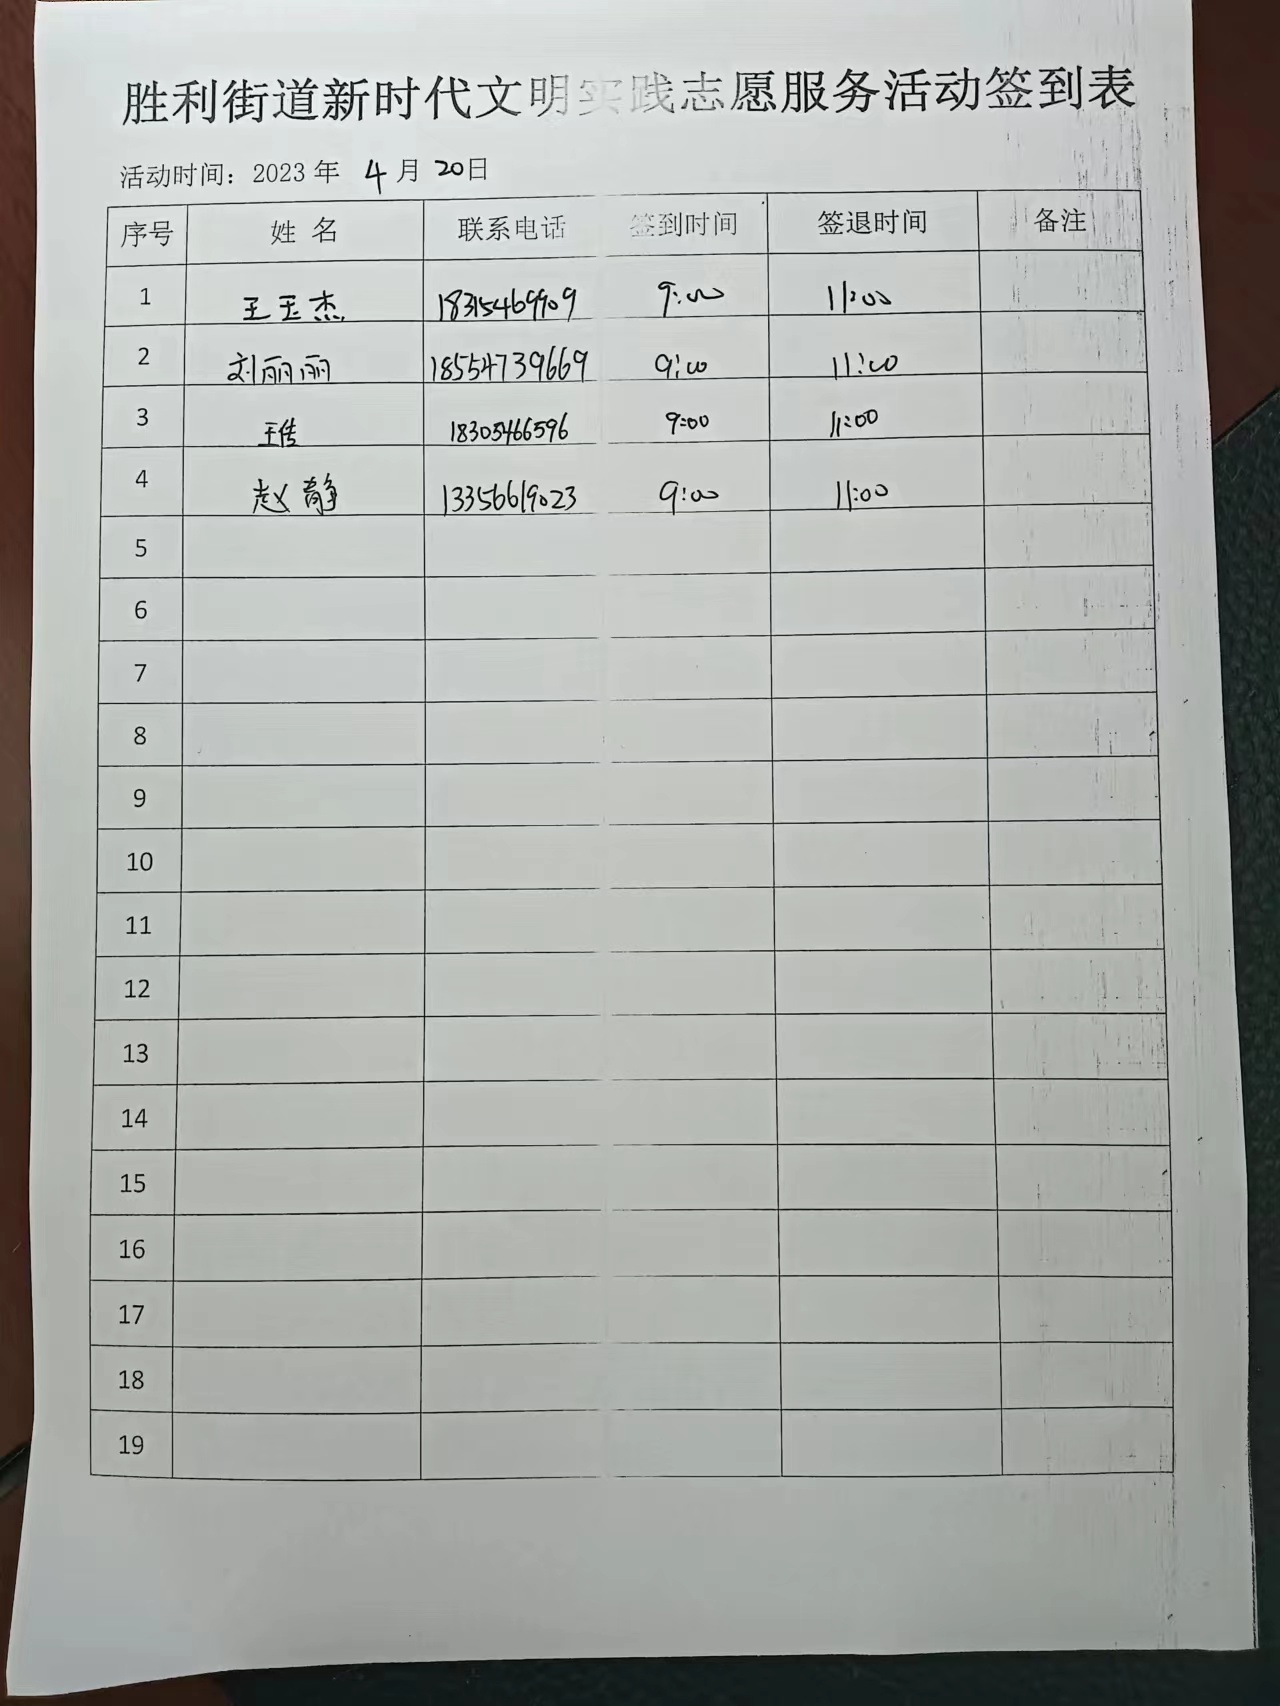 胜利街道新时代文明实践志愿服务活动签到表
活动时间：2023 年 4 月 20日
序号 姓 名 联系电话 签到时间 签退时间 备注
1 王玉杰 18315469909 9:00 11:00
2 刘丽丽 18554739669 9:00 11:00
3 王传 18305466596 9:00 11:00
4 赵静 13356619023 9:00 11:00
5
6
7
8
9
10
11
12
13
14
15
16
17
18
19